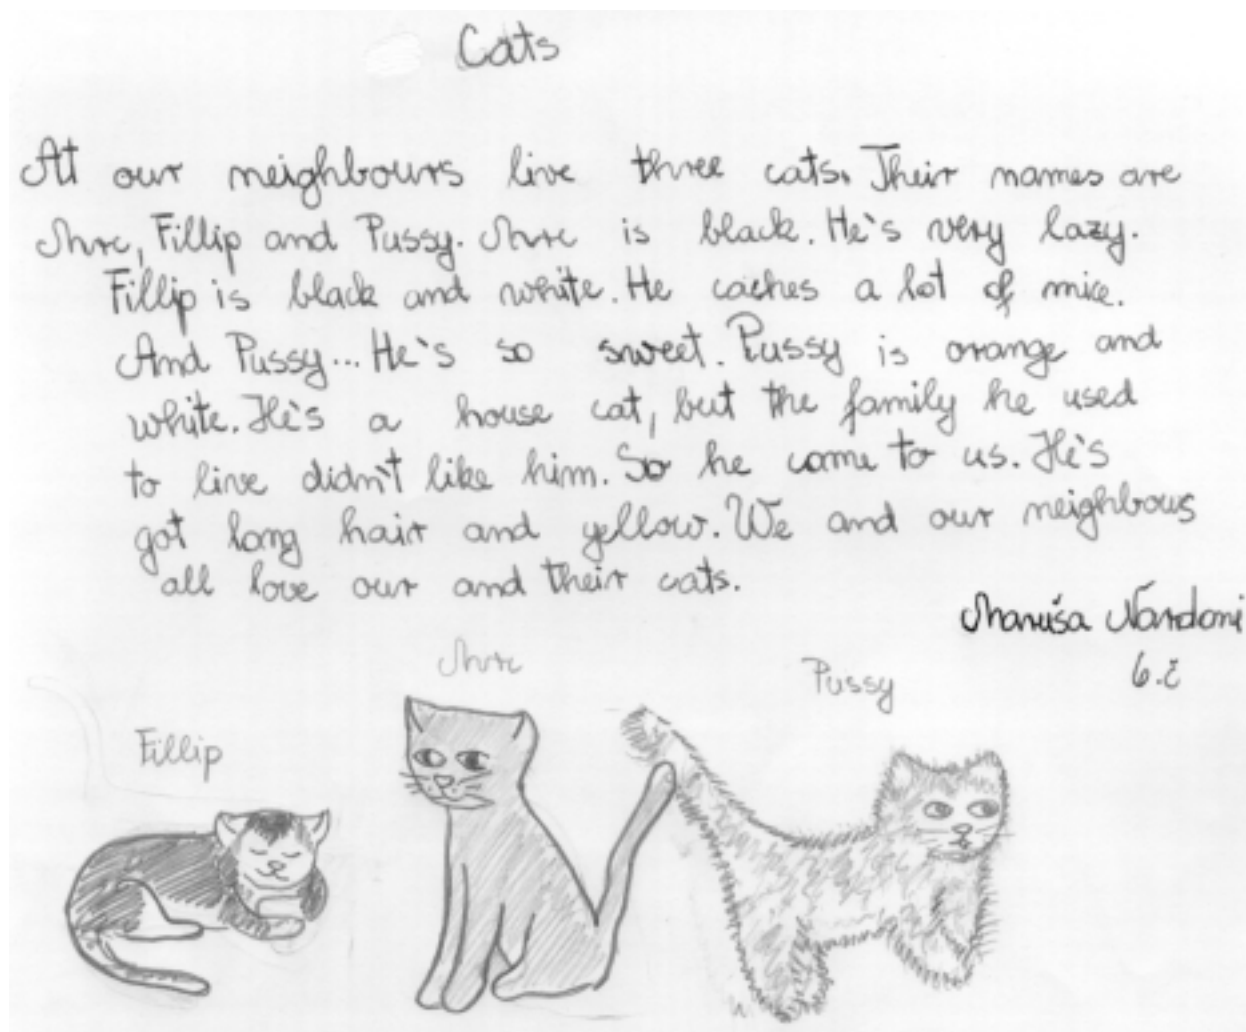 Cats
At our neighbours live three cats. Their names are
Fillip and Pussy. is black. He's very lazy.
Fillip is black and white. He caches a lot of mice.
And Pussy... He's so sweet. Pussy is orange and
white. He's a house cat, but the family he used
to live didn't like him. So he came to us. He's
got long hair and yellow. We and our neighbous
all love our and their cats.
Maruša Nardoni
6.č
Pussy
Fillip